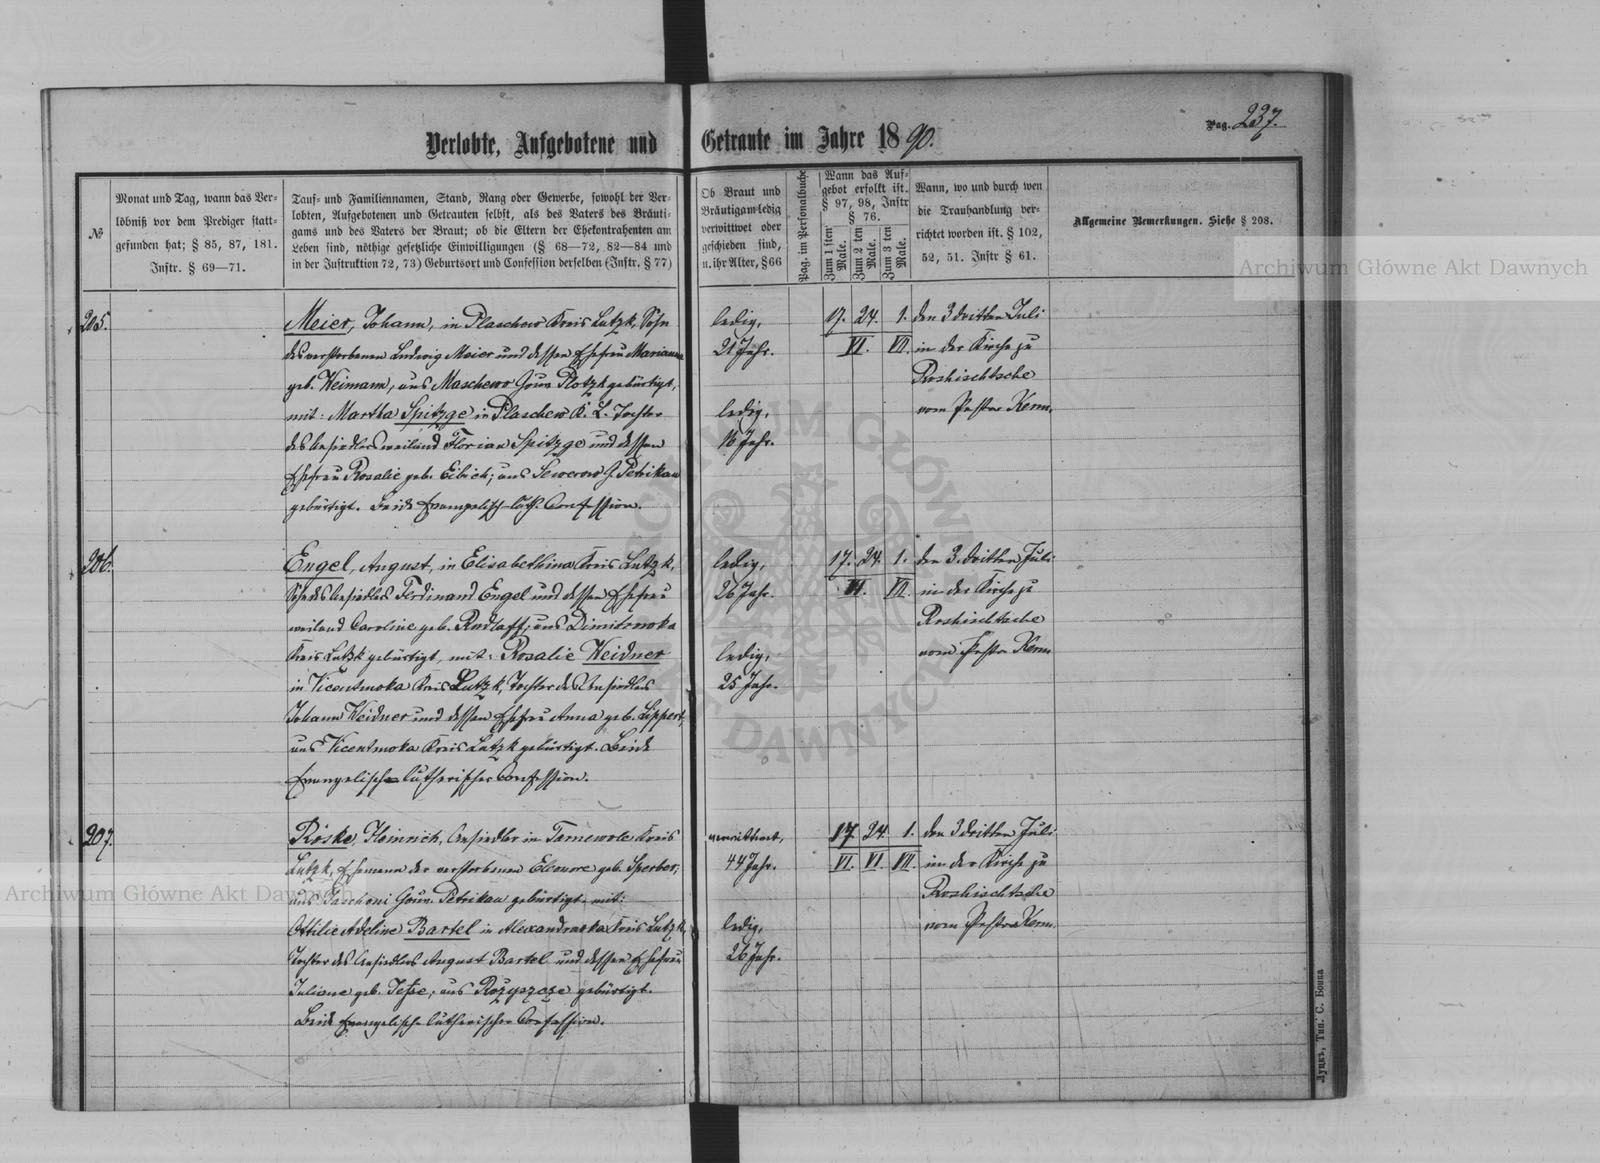 Pag. 237.
Verlobte, Aufgebotene und Getraute im Jahre 1890.
№
Monat und Tag, wann das Ver-
löbniß vor dem Prediger statt-
gefunden hat; § 85, 87, 181.
Instr. § 69—71.
Tauf- und Familiennamen, Stand, Rang oder Gewerbe, sowohl der Ver-
lobten, Aufgebotenen und Getrauten selbst, als des Vaters des Bräuti-
gams und des Vaters der Braut; ob die Eltern der Ehekontrahenten am
Leben sind, nöthige gesetzliche Einwilligungen (§ 68—72, 82—84 und
in der Justruktion 72, 73) Geburtsort und Confession derselben (Instr. § 77)
Ob Braut und
Bräutigam ledig
verwittwet oder
geschieden sind,
u. ihr Alter, § 66
Pag. im Personalbuche
Wann das Auf-
gebot erfolkt ist.
§ 97, 98, Instr
§ 76.
Zum 1 sten
Male.
Zum 2 ten
Male.
Zum 3 ten
Male.
Wann, wo und durch wen
die Trauhandlung ver-
richtet worden ist. § 102,
52, 51. Instr § 61.
Allgemeine Bemerkungen. Siehe § 208.
205.
Meier, Johann, in Plaschewo Kreis Lutzk, Sohn
des verstorbenen Ludwig Meier und dessen Ehefrau Marianna
geb. Weimann, aus Maschewo Gouv. Plotzk gebürtigt,
mit: Martha Spitzge in Plaschewo K. L. Tochter
des Ansiedlers weiland Florian Spitzge und dessen
Ehefrau Rosalie geb. Eibich; aus Sewerow G. Petrikau
gebürtigt. Beide Evangelisch-luth. Confession.
ledig,
21 Jahr.
ledig,
18 Jahr.
17. 24. 1.
VI. VII.
den 3 dritten Juli
in der Kirche zu
Roshischtsche
vom Pastor Kerm.
206.
Engel, August, in Elisabethina Kreis Lutzk,
Sohn des Ansiedlers Ferdinand Engel und dessen Ehefrau
weiland Caroline geb. Radlaff; aus Dimitrowka
Kreis Lutzk gebürtigt, mit: Rosalie Weidner
in Vicentmoka Kreis Lutzk, Tochter des Ansiedlers
Johann Weidner und dessen Ehefrau Anna geb. Lippert,
aus Vicentmoka Kreis Lutzk gebürtigt. Beide
Evangelisch lutherischer Confession.
ledig,
26 Jahr.
ledig,
25 Jahr.
17. 24. 1.
VI. VII.
den 3. dritten Juli
in der Kirche zu
Roshischtsche
vom Pastor Kerm
207.
Röske, Heinrich, Ansiedler in Tarnewole Kreis
Lutzk, Ehemann der verstorbenen Eleonore geb. Sperber,
aus Gouv. Petrikau gebürtigt mit:
Ottilie Adeline Bartel in Alexandrowka Kreis Lutzk,
Tochter des Ansiedlers August Bartel und dessen Ehefrau
Juliane geb. Jeße, aus Rożyszcze gebürtigt.
Beide Evangelisch lutherischer Confession.
verwittwet,
44 Jahr.
ledig,
26 Jahr.
17. 24. 1.
VI. VI. VII.
den 3 dritten Juli
in der Kirche zu
Roshischtsche
vom Pastor Kerm.
Луцкъ, Тип. С. Бонка
Archiwum Główne Akt Dawnych
Archiwum Główne Akt Dawnych
ARCHIWUM GŁÓWNE AKT DAWNYCH